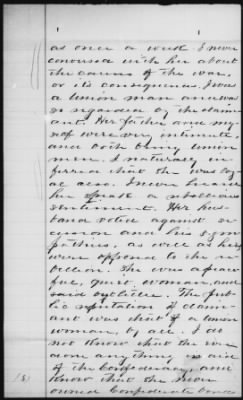 as once a week I never
conversed with her about
the causes of the war,
or its consequences. I was
a union man and was
so regarded by the claim-
ant. Her father and my
self were very intimate
and both being union
men. I naturally in-
ferred that she was loy-
al also. I never heard
her speak a rebellious
sentiment. Her hus-
band voted against se-
cession and his sym-
pathies, as well as hers
were opposed to the re-
bellion. She was a peace-
ful, quiet woman, and
said but little. The pub-
lic reputation of claim-
ant was that of a union
woman, by all. I do
not know that she ever
done any thing in aid
of the Confederacy, and
know that she never
owned Confederate bonds
(8)